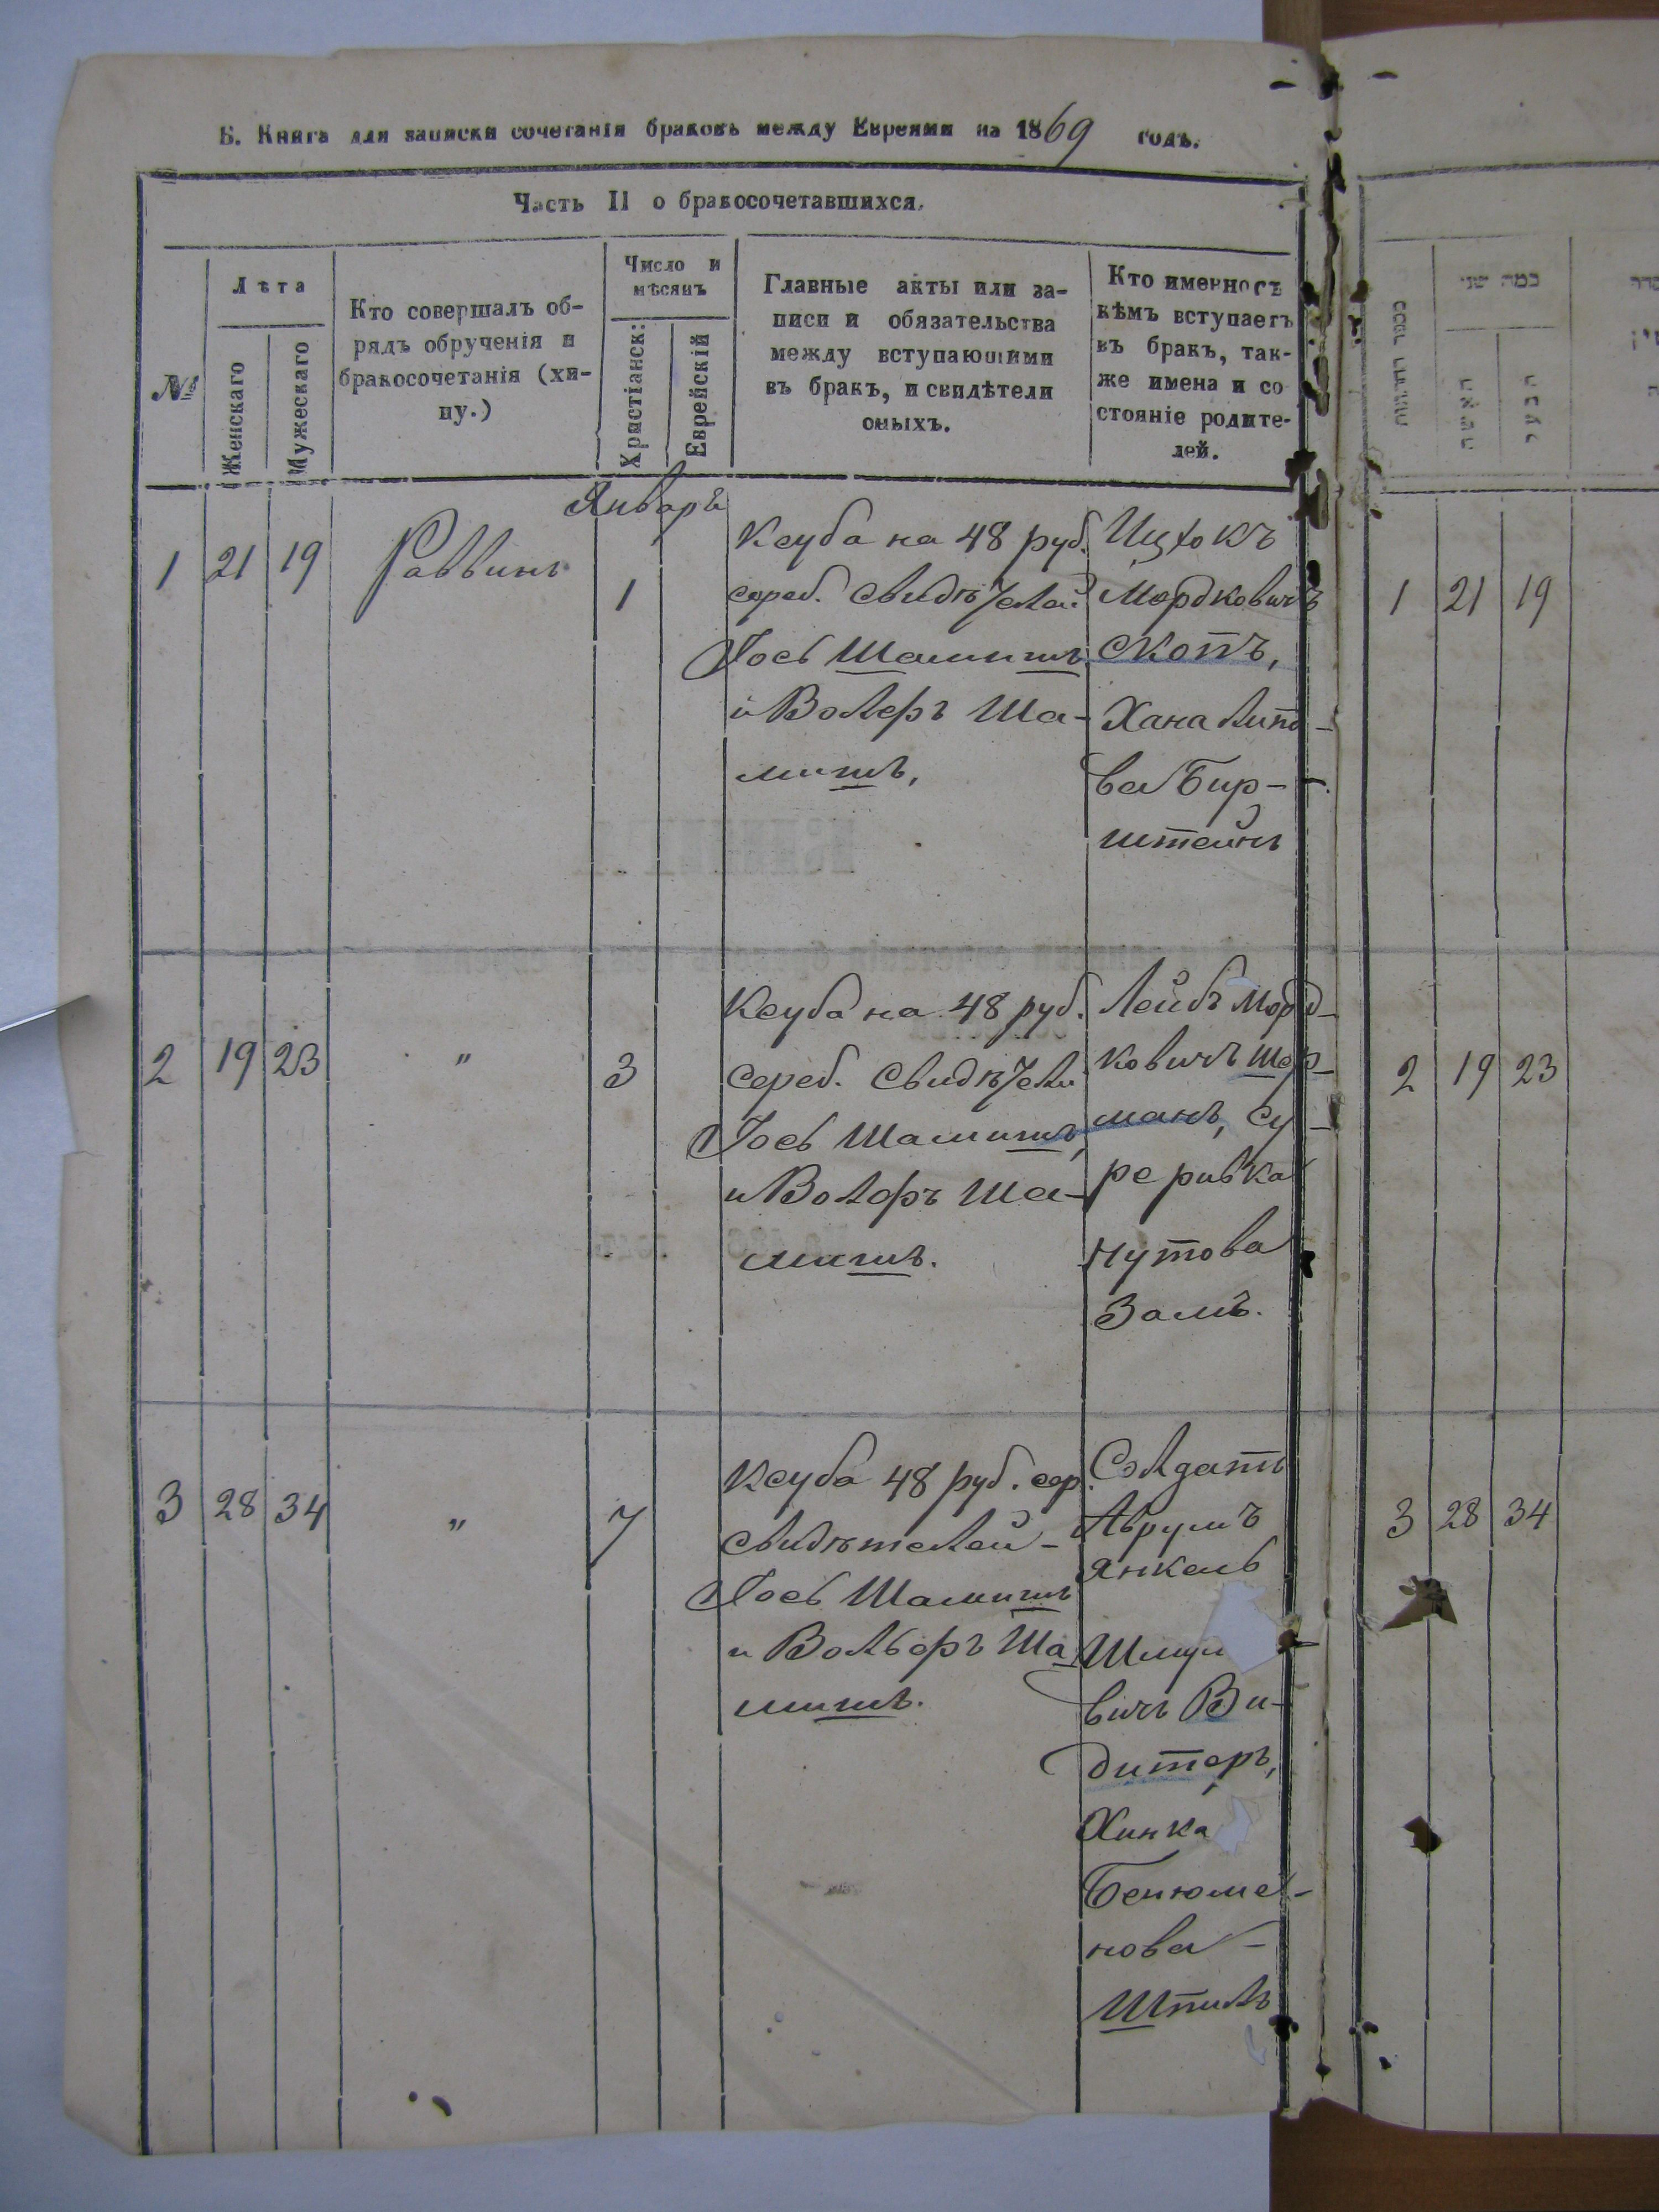 Б. Книга для записки сочетанія браковъ между Евреями на 1869 годъ.
Часть II о бракосочетавшихся.
№
Лѣта
Женскаго
Мужескаго
Кто совершалъ об-
рядъ обрученія и
бракосочетанія (хи-
пу.)
Число и
мѣсяцъ
Христіанск:
Еврейскій
Главные акты или за-
писи и обязательства
между вступающими
въ бракъ, и свидѣтели
оныхъ.
Кто именно съ
кѣмъ вступаетъ
въ бракъ, так-
же имена и со
стояніе родите-
лей.
כמה שני
Январь
1 21 19 Раввинъ 1
Ксуба на 48 руб.
сереб. Свидѣтели
Іось Шамишъ
и Вольфъ Ша-
мишъ,
Ицхокъ
Мордковичъ
Скопъ,
Хана Липо-
ва Бир-
штейнъ
1 21 19
2 19 23 " 3
Ксуба на 48 руб.
Сереб. Свидѣтели
Іось Шамишъ,
и Вольфъ Ша-
мишъ.
Лейбъ Морд-
ковичъ Шер-
манъ, Су-
ре ривка
Нутова
Замъ.
2 19 23
3 28 34 " 7
Ксуба 48 руб. сер.
свидѣтелей -
Іось Шамишъ
и Вольфъ Ша
мишъ.
Солдатъ
Аврумъ
Янкель
Шмул
вичъ Ви-
дитеръ,
Хинка
Бенюме-
нова -
Шпиль
3 28 34